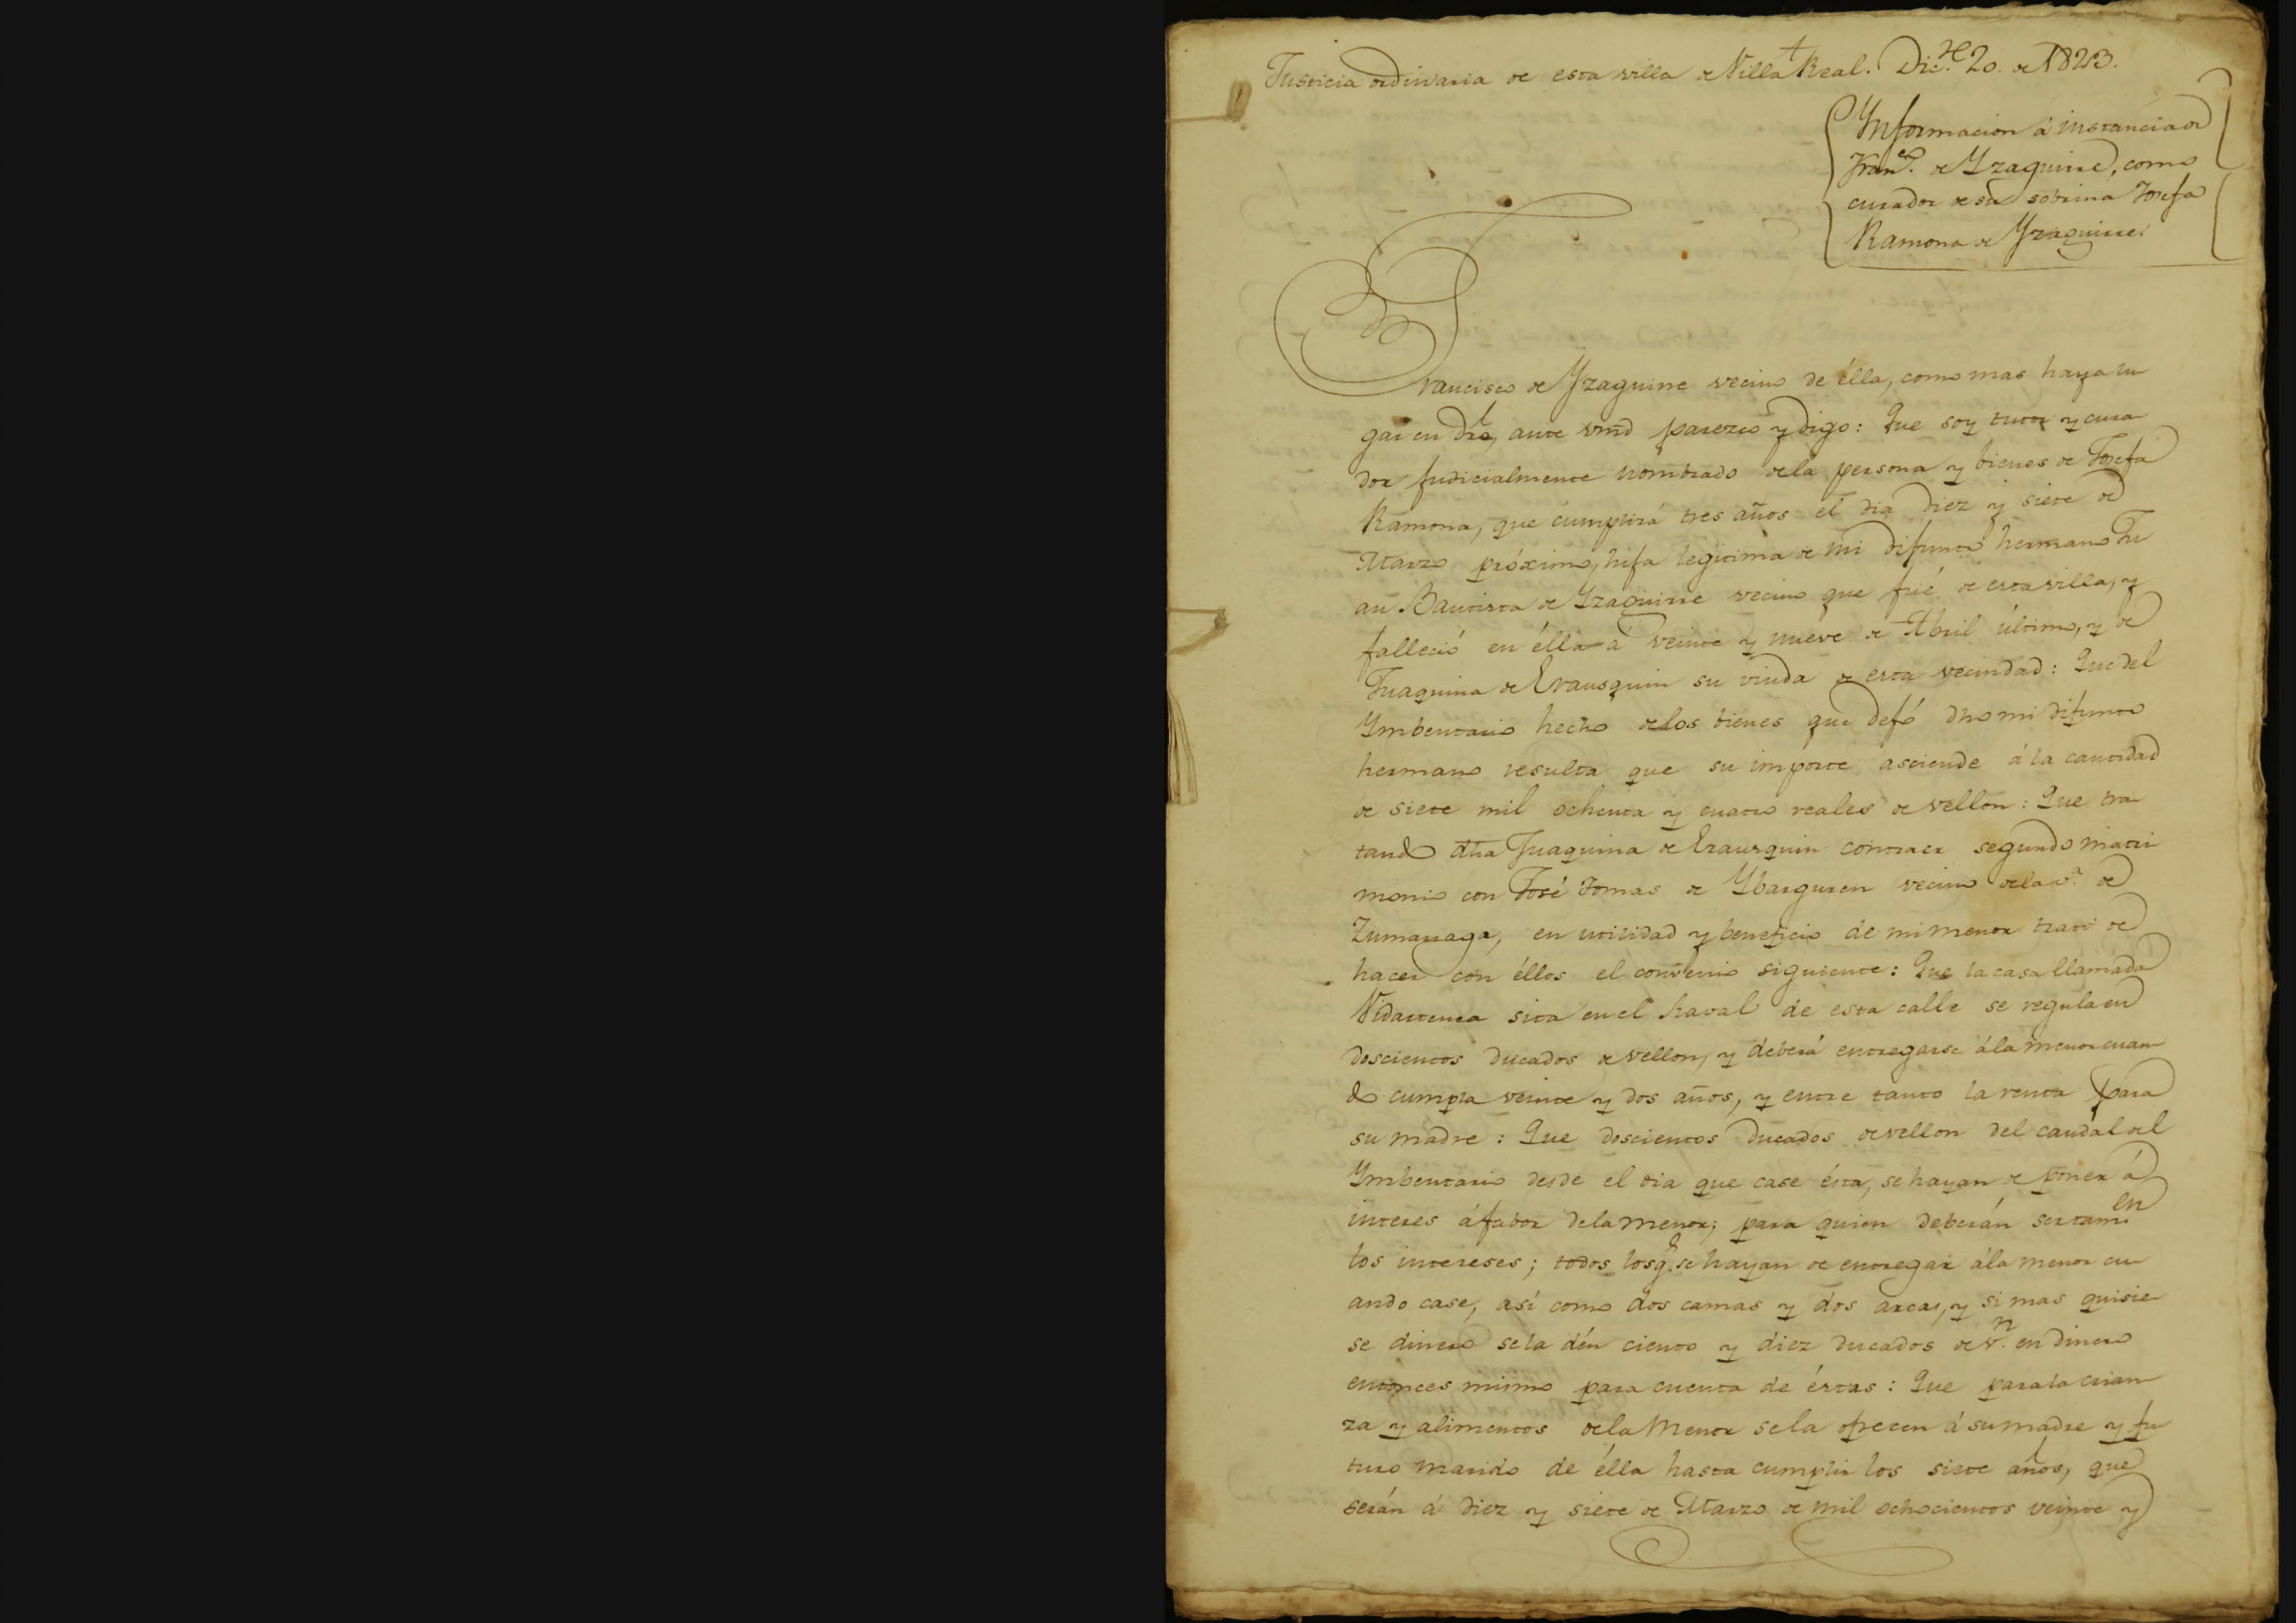 Justicia ordinaria de esta villa de Villa Real. Dic.re 20. de 1823.
Informacion á instancia de
Fran.co de Yzaguirre, como
curador de su sobrina Josefa
Ramona de Yzaguirre.
Francisco de Yzaguirre vecino de élla, como mas haya lu
gar en dro, ante vmd parezco y digo: Que soy tutor y cura
dor judicialmente nombrado de la persona y bienes de Josefa
Ramona, que cumplirá tres años el dia diez y siete de
Marzo próximo, hija legitima de mi difunto hermano Ju
an Bautista de Yzaguirre vecino que fué de esta villa, y
falleció en élla á veinte y nueve de Abril último, y de
Juaquina de Erausquin su viuda de esta vecindad: Que del
Ymbentario hecho de los bienes que dejó dho mi difunto
hermano resulta que su importe asciende á la cantidad
de siete mil ochenta y cuatro reales de vellon: Que tra
tando dha Juaquina de Erausquin contraer segundo matri
monio con José Tomas de Ybarguren vecino de la v.a de
Zumarraga, en utilidad y beneficio de mi menor trató de
hacer con éllos el convenio siguiente: Que la casa llamada
Vidartenea sita en el Raval de esta calle se regula en
doscientos ducados de vellon, y deberá entregarse á la menor cuan
do cumpla veinte y dos años, y entre tanto la renta para
su madre: Que doscientos ducados de vellon del caudal del
Ymbentario desde el dia que case ésta, se hayan de poner á
interes á fabor de la menor; para quien deberán ser tam.en
los intereses; todos los q.e se hayan de entregar á la menor cu
ando case, así como dos camas y dos arcas, y si mas quisie
se dinero se la dén ciento y diez ducados de v.n en dinero
entonces mismo para cuenta de éstas: Que para la crian
za y alimentos de la Menor se la ofrecen á su madre y fu
turo marido de élla hasta cumplir los siete años, que
serán á diez y siete de Marzo de mil ochocientos veinte y